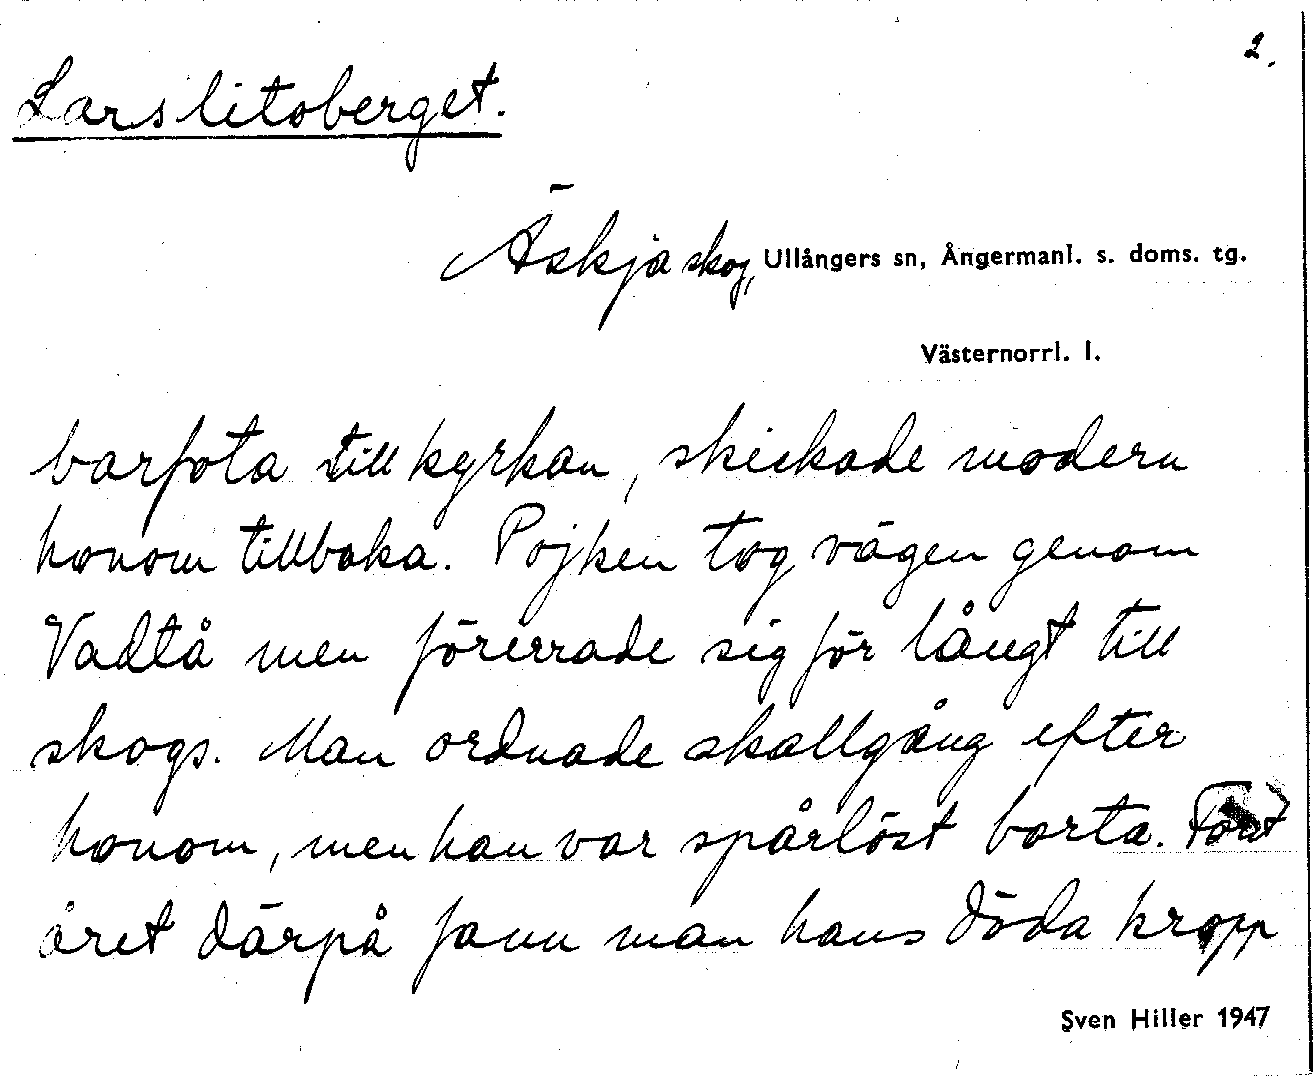 2.
Larslitoberget.
Äskja skog, Ullångers sn, Ångermanl. s. doms. tg.
Västernorrl. l.
barfota till kyrkan, skickade modern
honom tillbaka. Pojken tog vägen genom
Vadtå men förirrade sig för långt till
skogs. Man ordnade skallgång efter
honom, men han var spårlöst borta. Först
året därpå fann man hans döda kropp
Sven Hiller 1947